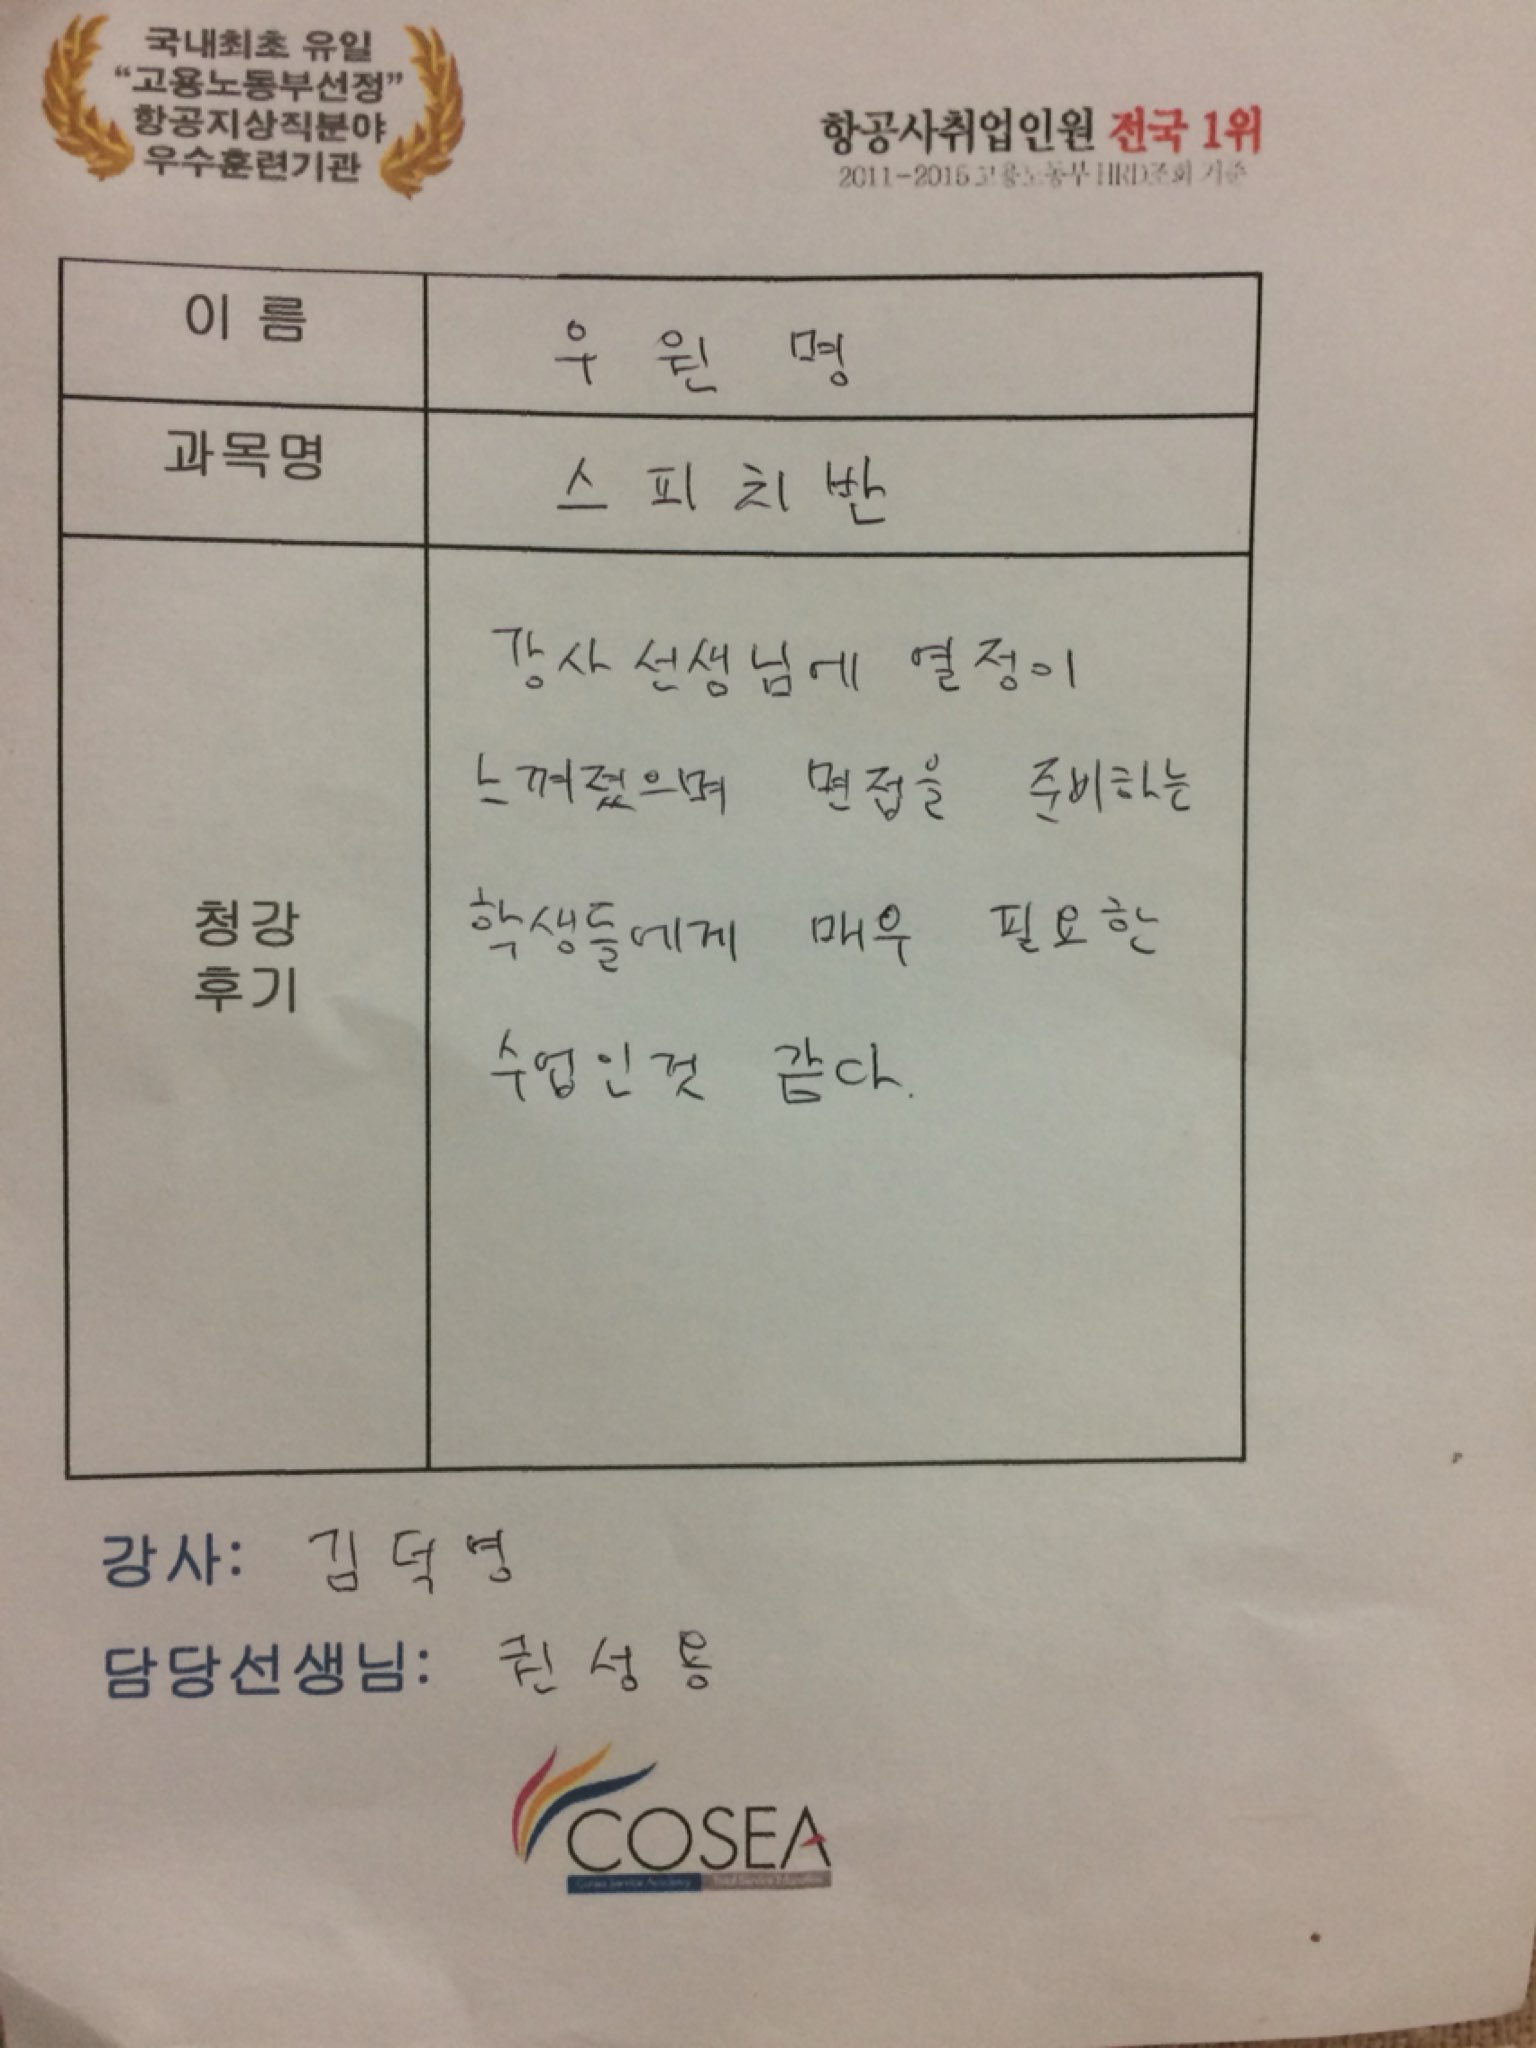 국내최초 유일
“고용노동부선정”
항공지상직분야
우수훈련기관
항공사취업인원 전국 1위
2011-2015 고용노동부 HRD조회 기준
이 름
우 원 명
과목명
스 피 치 반
강사선생님에 열정이
느껴졌으며 면접을 준비하는
학생들에게 매우 필요한
수업인것 같다.
청강
후기
강사: 김덕영
담당선생님: 권성용
COSEA
Cosea Service Academy Total Service Education